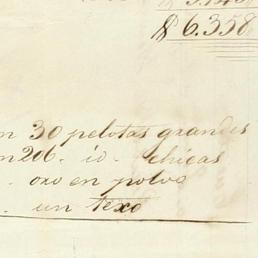 $ 6.358
n 30 pelotas grandes
n 206. id. chicas
. oro en polvo
. un texo